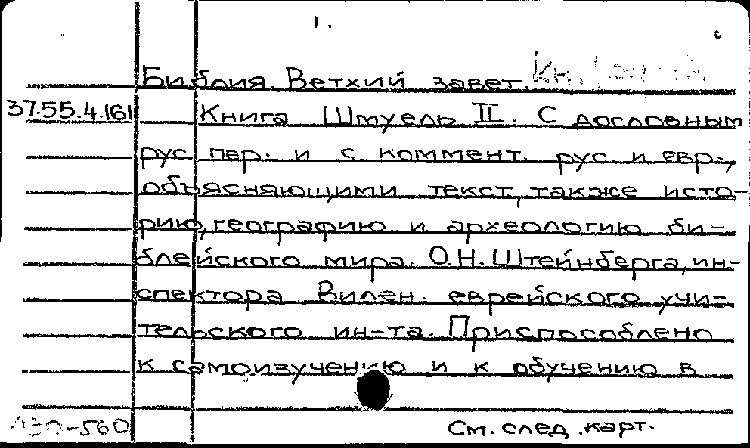 1.
Библия. Ветхий завет. Кн.
37.55.4.161 Книга Шмуель II. С дословным
рус. пер. и с коммент. рус. и евр.,
объясняющими текст, также исто-
рию, географию и археологию би-
блейского мира. О.Н. Штейнберга, ин-
спектора Вилен. еврейского учи-
тельского ин-та. Приспособлено
к самоизучению и к обучению в
См. след. карт.